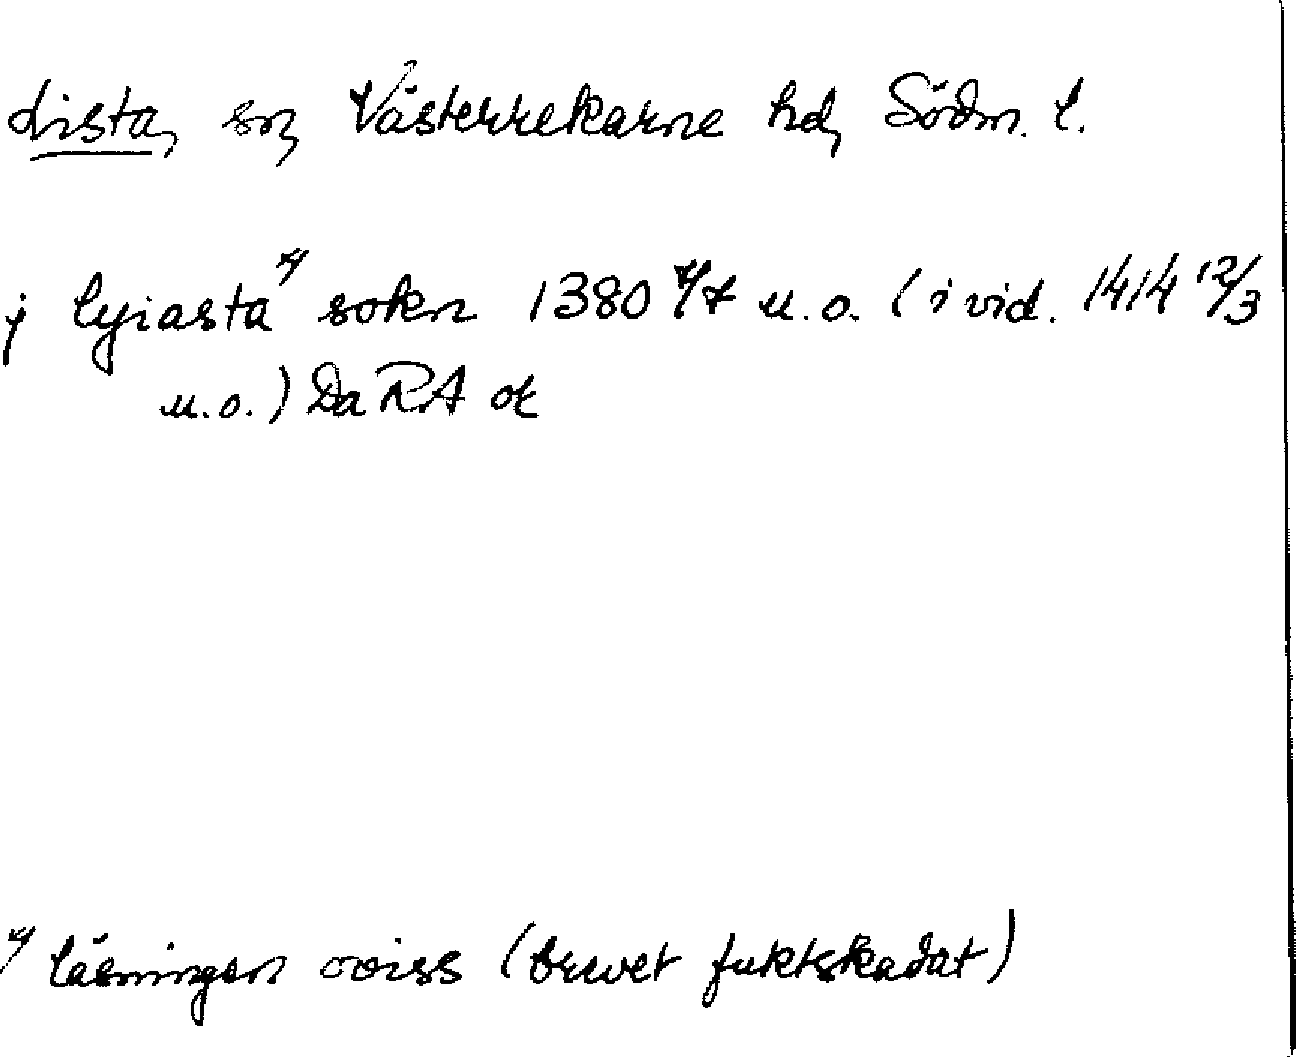 Lista, sn, Västerrekarne hd, Södm. l.
j lyiasta x) sokn 1380 4/7 u.o. (i vid. 1414 12/3
u.o.) DaRA or
x) läsningen oviss (brevet fuktskadat)